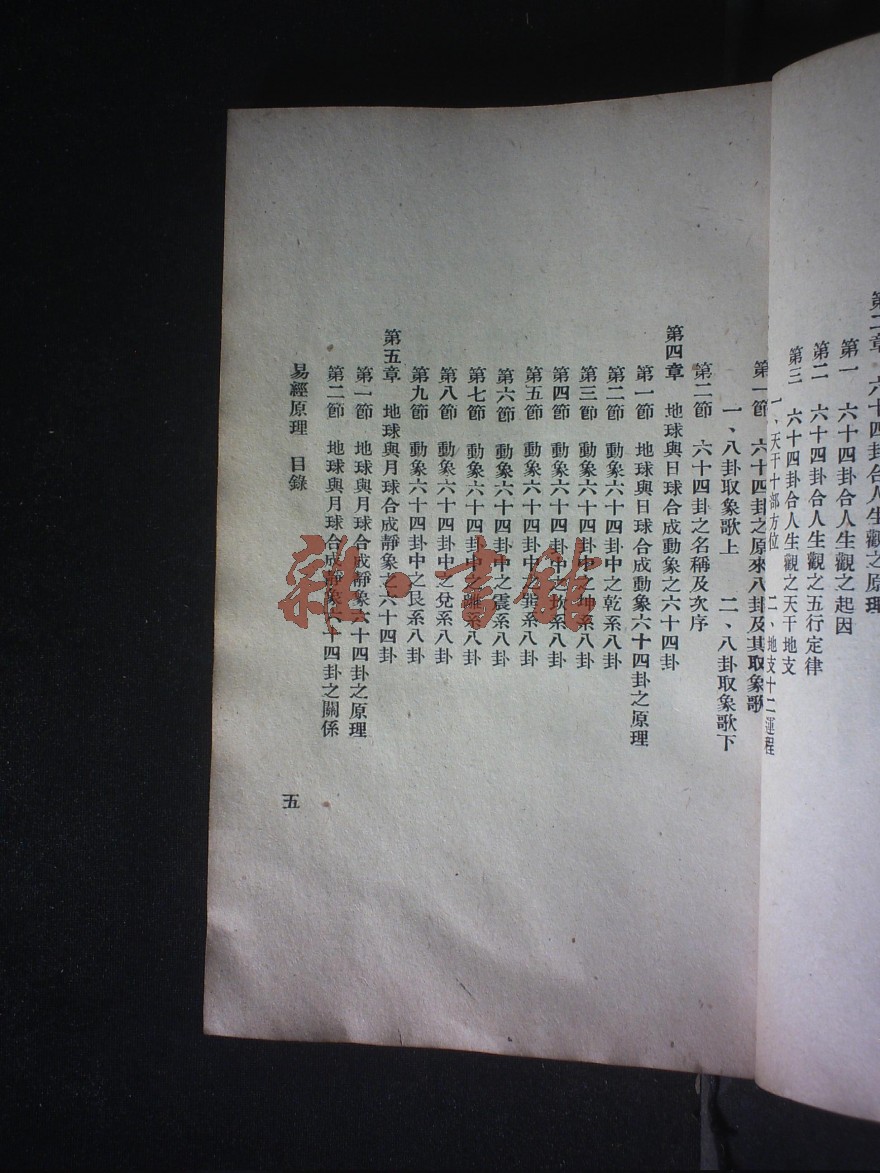 第二章 六十四卦合人生觀之原理
第一 六十四卦合人生觀之起因
第二 六十四卦合人生觀之五行定律
第三 六十四卦合人生觀之天干地支
一、天干十部方位 二、地支十二運程
第一節 六十四卦之原來八卦及其取象歌
一、八卦取象歌上 二、八卦取象歌下
第二節 六十四卦之名稱及次序
第四章 地球與日球合成動象之六十四卦
第一節 地球與日球合成動象六十四卦之原理
第二節 動象六十四卦中之乾系八卦
第三節 動象六十四卦中之坤系八卦
第四節 動象六十四卦中之坎系八卦
第五節 動象六十四卦中之巽系八卦
第六節 動象六十四卦中之震系八卦
第七節 動象六十四卦中之離系八卦
第八節 動象六十四卦中之兌系八卦
第九節 動象六十四卦中之艮系八卦
第五章 地球與月球合成靜象之六十四卦
第一節 地球與月球合成靜象六十四卦之原理
第二節 地球與月球合成靜象六十四卦之關係
易經原理 目錄
五
雜·書館